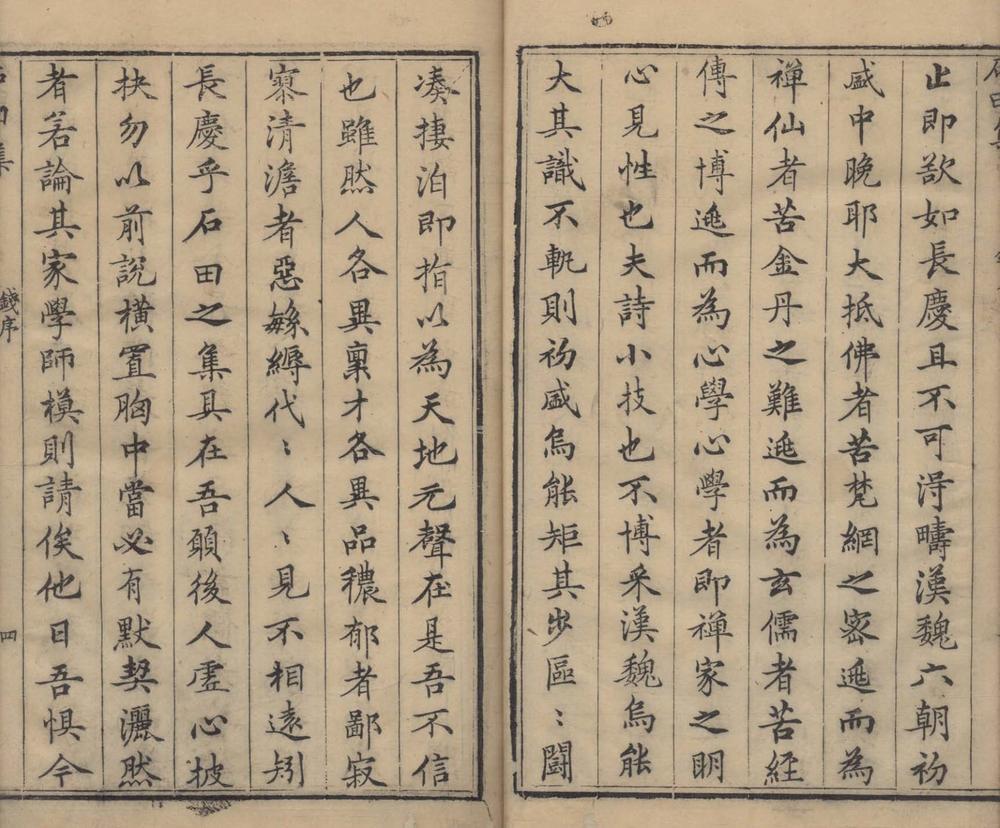 止即欲如長慶且不可淂疇漢魏六朝初
盛中晚耶大抵佛者苦梵網之密遁而為
禅仙者苦金丹之難遁而為玄儒者苦経
傳之博遁而為心學心學者即禅家之明
心見性也夫詩小技也不博采漢魏烏能
大其識不軌則初盛烏能矩其步區〻鬪
湊捿泊即指以為天地元聲在是吾不信
也雖然人各異稟才各異品穠郁者鄙寂
寥清澹者惡緐縟代〻人〻見不相遠矧
長慶乎石田之集具在吾願後人虛心披
抉勿以前説橫置胸中當必有默契灑然
者若論其家學師模則請俟他日吾惧今
錢序
四